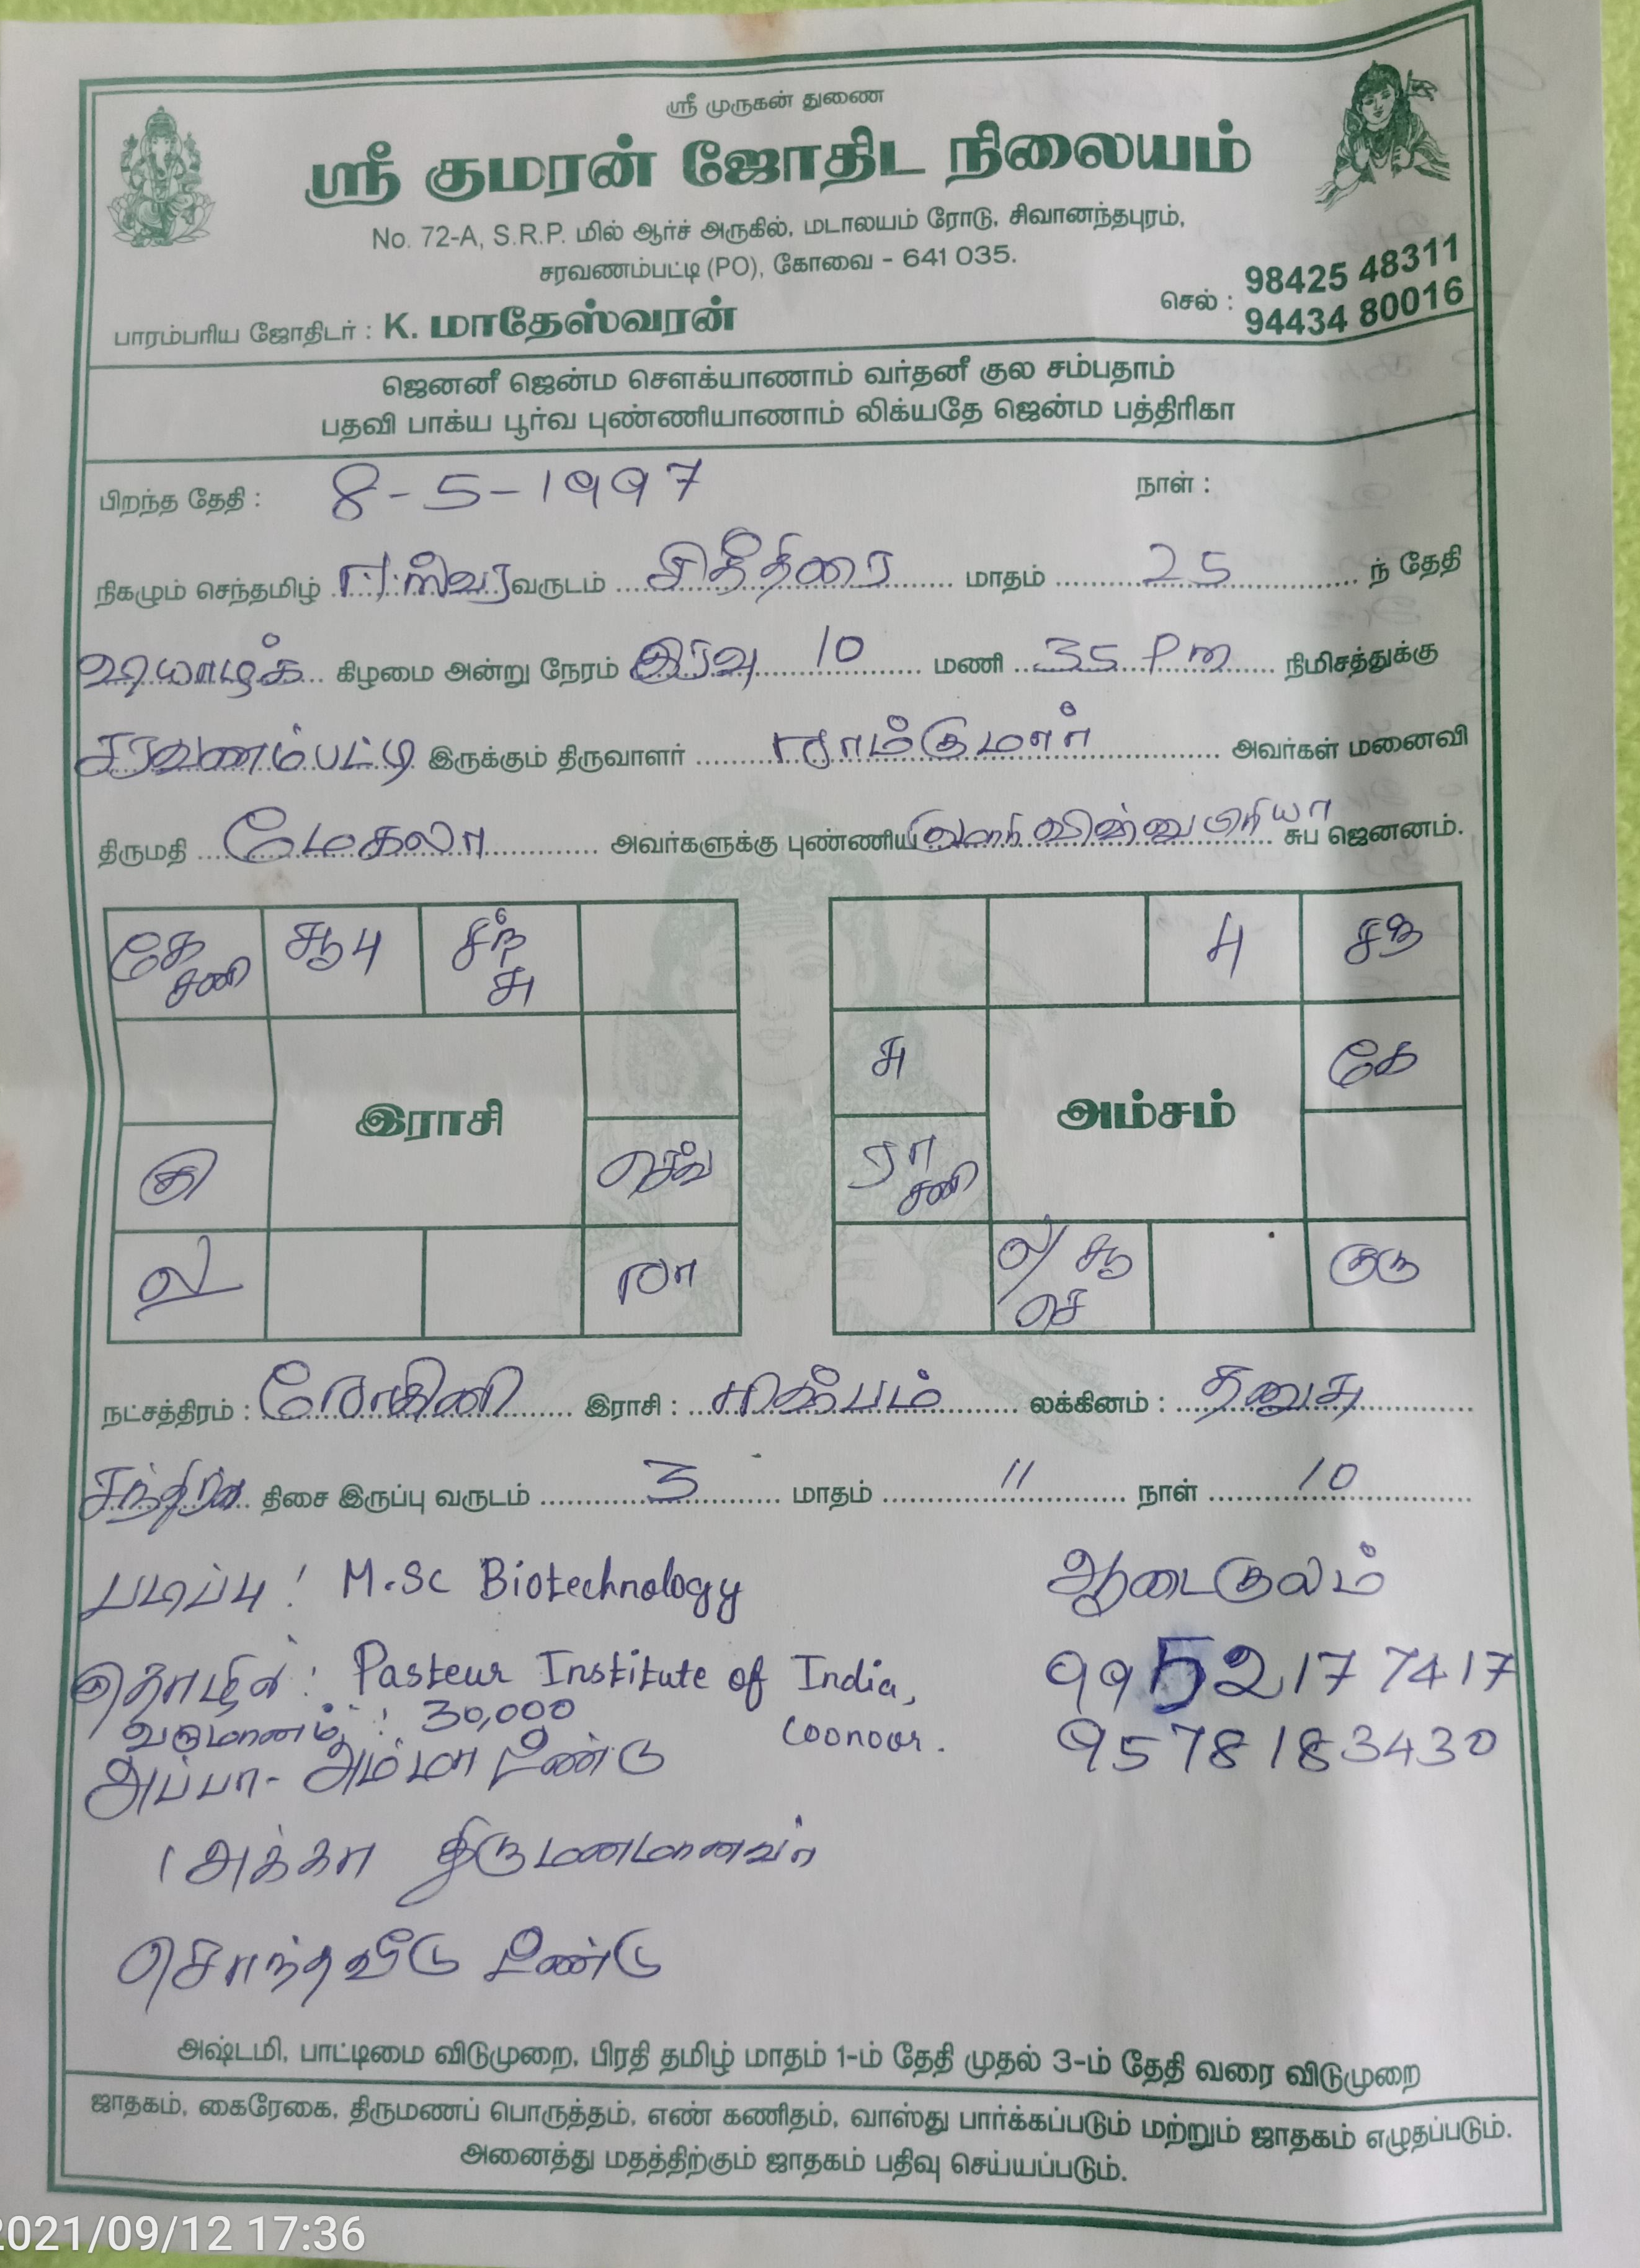 ஸ்ரீ முருகன் துணை
ஸ்ரீ குமரன் ஜோதிட நிலையம்
No. 72-A, S.R.P. மில் ஆர்ச் அருகில், மடாலயம் ரோடு, சிவானந்தபுரம்,
சரவணம்பட்டி (PO), கோவை - 641 035.
பாரம்பரிய ஜோதிடர் : K. மாதேஸ்வரன் செல் : 98425 48311
94434 80016
ஜெனனீ ஜென்ம சௌக்யாணாம் வர்தனீ குல சம்பதாம்
பதவி பாக்ய பூர்வ புண்ணியாணாம் லிக்யதே ஜென்ம பத்திரிகா
பிறந்த தேதி : 8-5-1997 நாள் :
நிகழும் செந்தமிழ் ஈஸ்வர வருடம் சித்திரை மாதம் 25 ந் தேதி
வியாழக் கிழமை அன்று நேரம் இரவு 10 மணி 35 Pm நிமிசத்துக்கு
சரவணம்பட்டி இருக்கும் திருவாளர் ராம்குமார் அவர்கள் மனைவி
திருமதி மேகலா அவர்களுக்கு புண்ணிய சுப ஜெனனம்.
கே சனி சூ பு சந் சு
பு சந்
சு கே
இராசி அம்சம்
கு செவ் ரா சனி
ல ரா ல/ சூ செ குரு
நட்சத்திரம் : ரோகினி இராசி : ரிஷபம் லக்கினம் : தனுசு
சந்திரன் திசை இருப்பு வருடம் 3 மாதம் 11 நாள் 10
படிப்பு : M.Sc Biotechnology ஆடைகுலம்
தொழில் : Pasteur Institute of India, 9952177417
வருமானம் : 30,000 Coonoor. 9578183430
அப்பா - அம்மா உண்டு
1 அக்கா திருமணமானவர்
சொந்தவீடு உண்டு
அஷ்டமி, பாட்டிமை விடுமுறை, பிரதி தமிழ் மாதம் 1-ம் தேதி முதல் 3-ம் தேதி வரை விடுமுறை
ஜாதகம், கைரேகை, திருமணப் பொருத்தம், எண் கணிதம், வாஸ்து பார்க்கப்படும் மற்றும் ஜாதகம் எழுதப்படும்.
அனைத்து மதத்திற்கும் ஜாதகம் பதிவு செய்யப்படும்.
2021/09/12 17:36